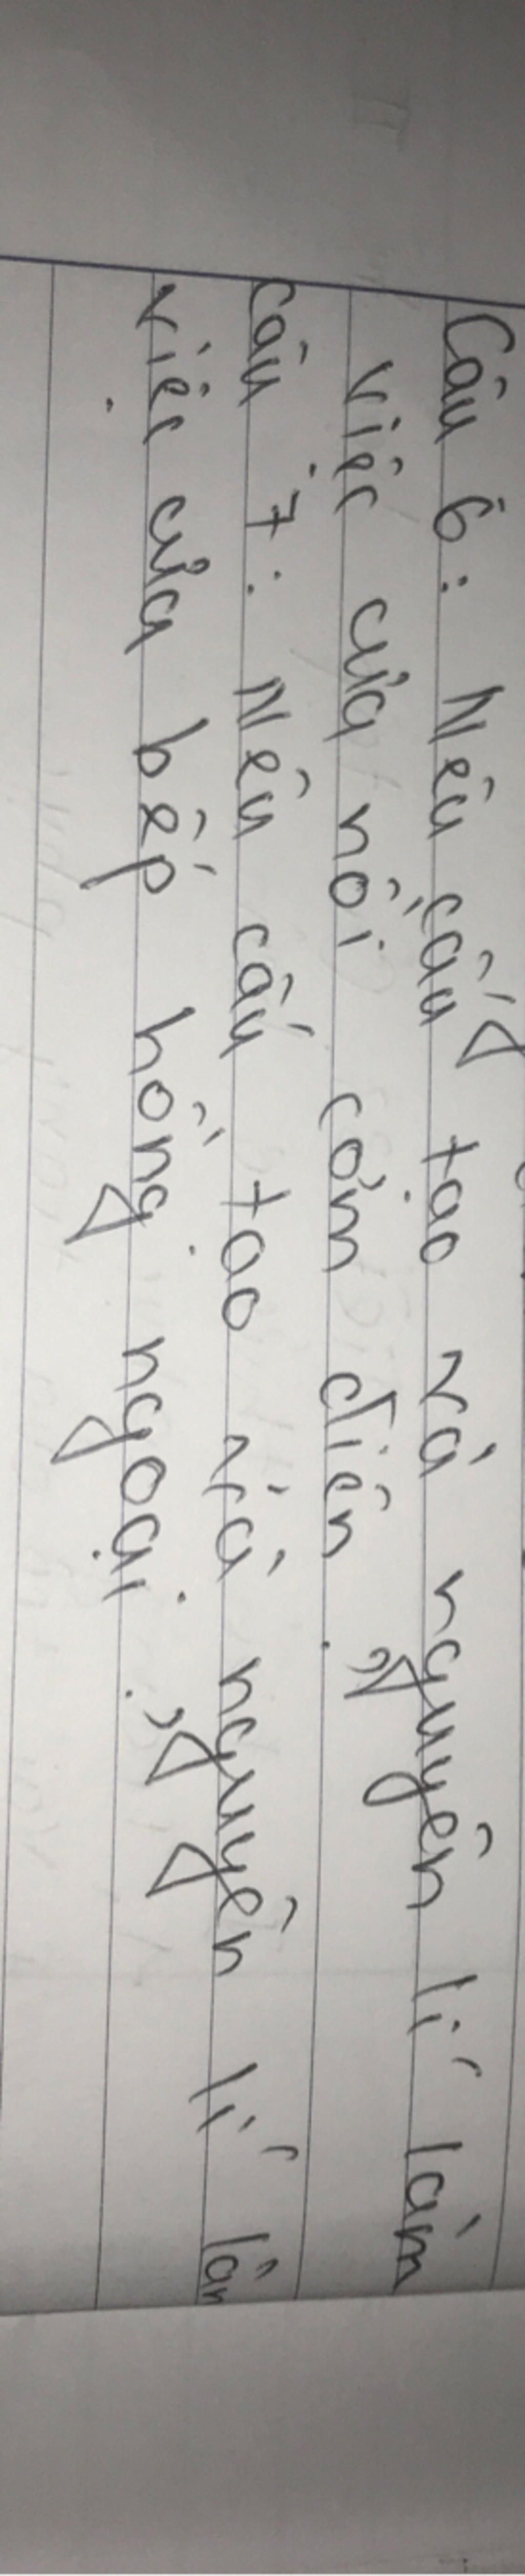 Câu 6: Nêu cấu tạo và nguyên lí làm
việc của nồi cơm điện.
Câu 7: Nêu cấu tạo và nguyên lí làm
việc của bếp hồng ngoại.